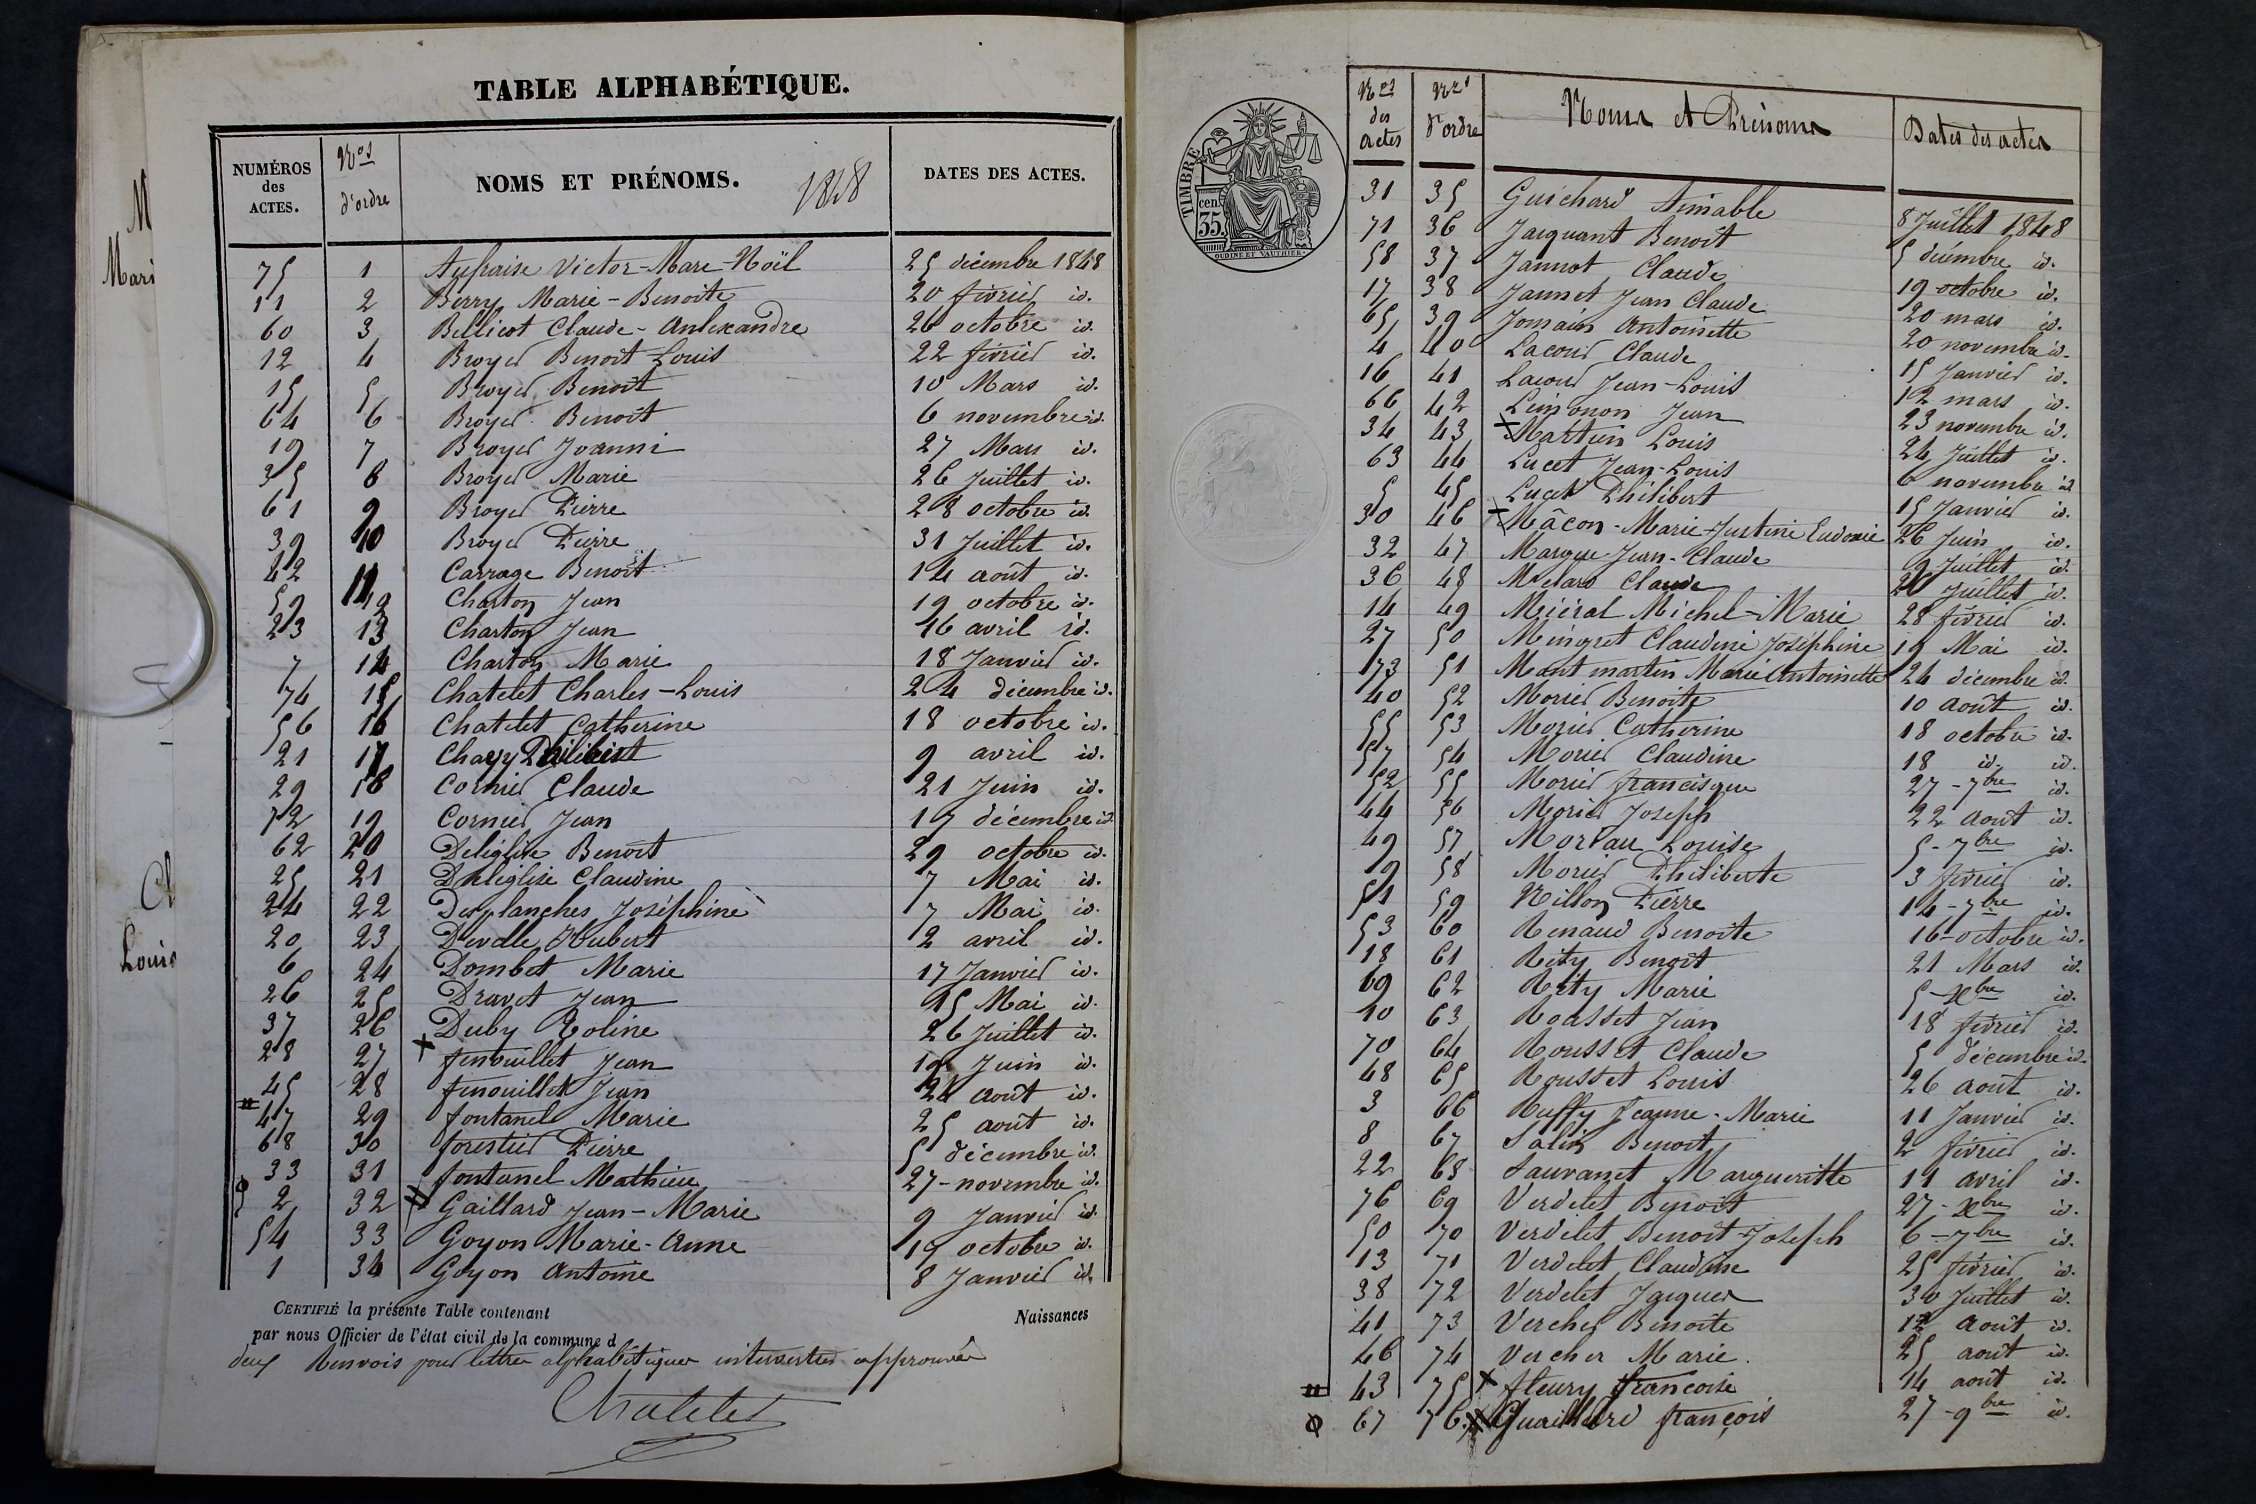 M
Mari
Louis
TABLE ALPHABÉTIQUE.
NUMÉROS des ACTES. Nos d'ordre NOMS ET PRÉNOMS. 1848 DATES DES ACTES.
75 1 Aufraise Victor-Marc-Noël 25 décembre 1848
11 2 Berry Marie-Benoite 20 février id.
60 3 Bellicot Claude-Anlexandre 26 octobre id.
12 4 Broyer Benoit Louis 22 février id.
15 5 Broyer Benoit 10 Mars id.
64 6 Broyer Benoît 6 novembre id.
19 7 Broyer Joanni 27 Mars id.
35 8 Broyer Marie 26 Juillet id.
61 9 Broyer Pierre 28 octobre id.
39 10 Broyer Pierre 31 Juillet id.
42 11 Carrage Benoit 14 août id.
59 12 Charton Jean 19 octobre id.
23 13 Charton Jean 16 avril id.
7 14 Charton Marie 18 Janvier id.
74 15 Chatelet Charles-Louis 24 décembre id.
56 16 Chatelet Catherine 18 octobre id.
21 17 Chavy Philibert 9 avril id.
29 18 Cornier Claude 21 Juin id.
72 19 Cornier Jean 17 décembre id.
62 20 Deliglise Benoit 29 octobre id.
25 21 Deliglise Claudine 7 Mai id.
24 22 Desplanches Joséphine 7 Mai id.
20 23 Develle Hubert 2 avril id.
6 24 Dombet Marie 17 Janvier id.
26 25 Dravet Jean 15 Mai id.
37 26 Duby Zoline 26 Juillet id.
28 27 fenouillet Jean Juin id.
45 28 fenouillet Jean 24 août id.
47 29 fontanel Marie 25 août id.
68 30 forestier Pierre 5 décembre id.
33 31 fontanel Mathieu 27-novembre id.
2 32 Gaillard Jean-Marie 9 Janvier id.
54 33 Goyon Marie-Anne 19 octobre id.
1 34 Goyon Antoine 8 Janvier id.
CERTIFIÉ la présente Table contenant Naissances
par nous Officier de l'état civil de la commune d
deux Renvois pour lettres alphabétiques interverties approuvés
Chatelet
TIMBRE
cen.
35.
OUDINÉ ET VAUTHIER.
Nos des actes Nos d'ordre Noms et Prénoms Dates des actes
31 35 Guichard Aimable 8 Juillet 1848
71 36 Jacquant Benoît 5 décembre id.
58 37 Jannot Claude 19 octobre id.
17 38 Jannet Jean Claude 20 mars id.
65 39 Jomain Antoinette 20 novembre id.
4 40 Lacour Claude 15 Janvier id.
16 41 Lacour Jean-Louis 12 mars id.
66 42 Limonon Jean 23 novembre id.
34 43 Martin Louis 24 Juillet id.
63 44 Lucet Jean-Louis 6 novembre id
5 45 Lucet Philibert 15 Janvier id.
30 46 Mâcon-Marie-Justine Eudoxie 26 Juin id.
32 47 Margue Jean-Claude 9 Juillet id.
36 48 Melaro Claude 26 Juillet id.
14 49 Miéral Michel-Marie 28 février id.
27 50 Mingret Claudine Joséphine 19 Mai id.
73 51 Montmartin Marie Antoinette 24 décembre id.
40 52 Morier Benoite 10 août id.
55 53 Morier Catherine 18 octobre id.
57 54 Morier Claudine 18 id. id.
52 55 Morier francisque 27-7bre id.
44 56 Morier Joseph 22 août id.
49 57 Moreau Louise 5-7bre id.
9 58 Morier Philiberte 3 février id.
51 59 Nillon Pierre 14-7bre id.
53 60 Renaud Benoite 16-octobre id.
18 61 Rety Benoît 21 Mars id.
69 62 Rety Marie 5-Xbre id.
10 63 Roasset Jean 18 février id.
70 64 Rousset Claude 5 décembre id.
48 65 Rousset Louis 26 août id.
3 66 Ruffy Jeanne-Marie 11 Janvier id.
8 67 Salin Benoit 2 février id.
22 68 Sauvanet Marguerite 11 avril id.
76 69 Verdelet Benoit 27-Xbre id.
50 70 Verdelet Benoit-Joseph 6-7bre id.
13 71 Verdelet Claudine 25 février id.
38 72 Verdelet Jacques 30 Juillet id.
41 73 Vercher Benoite 12 août id.
46 74 Vercher Marie. 25 août id.
43 75 fleury françoise 14 août id.
67 76 Guaillard françois 27-9bre id.